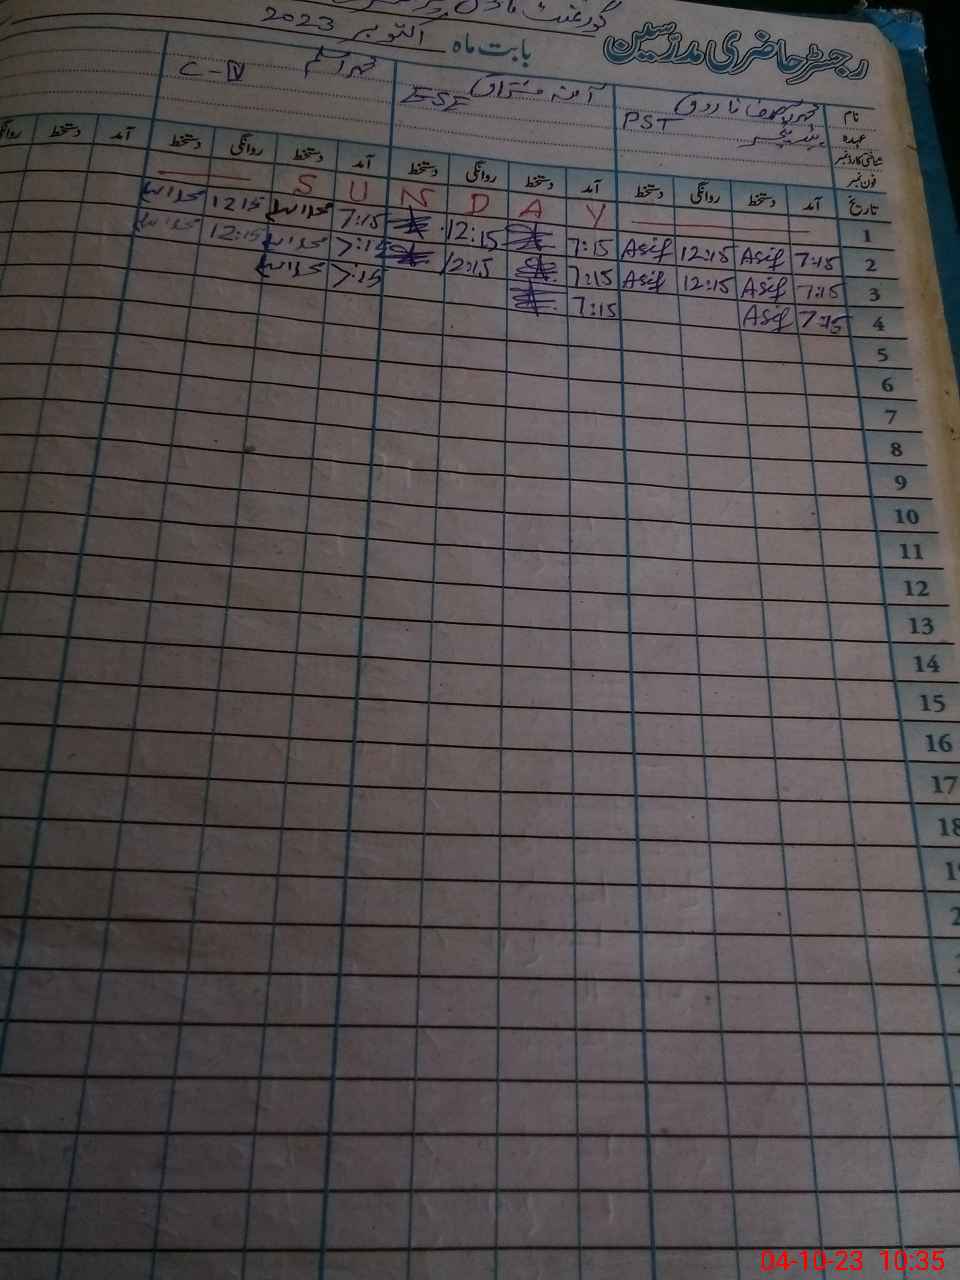 رجسٹر حاضری مدرسین
بابت ماہ اکتوبر 2023
نام محمد آصف فاروق آمنہ مشتاق محمد اسلم
عہدہ PST ESE C-IV
شناختی کارڈ نمبر
فون نمبر
تاریخ آمد دستخط روانگی دستخط آمد دستخط روانگی دستخط آمد دستخط روانگی دستخط آمد دستخط روانگی
1 S U N D A Y
2 7:15 Asif 12:15 Asif 7:15 12:15 7:15 12:15
3 7:15 Asif 12:15 Asif 7:15 12:15 7:15 12:15
4 7:15 Asif 7:15 7:15
5
6
7
8
9
10
11
12
13
14
15
16
17
18
04-10-23 10:35